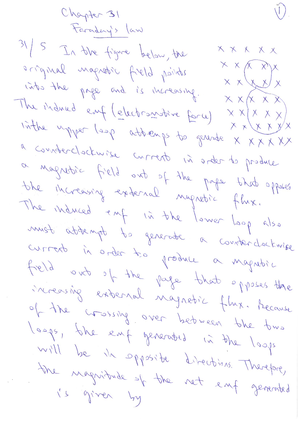 1
Chapter 31
Faraday's law
31/5 In the figure below, the
original magnetic field points
into the page and is increasing.
The induced emf (electromotive force)
in the upper loop attemps to generate
a counterclockwise current in order to produce
a magnetic field out of the page that opposes
the increasing external magnetic flux.
The induced emf in the lower loop also
must attempt to generate a counterclockwise
current in order to produce a magnetic
field out of the page that opposes the
increasing external magnetic flux. Because
of the crossing over between the two
loops, the emf generated in the loops
will be in opposite directions. Therefore,
the magnitude of the net emf generated
is given by
x x x x x
x x x x x
x x x x x
x x x x x
x x x x x
x x x x x
x x x x x